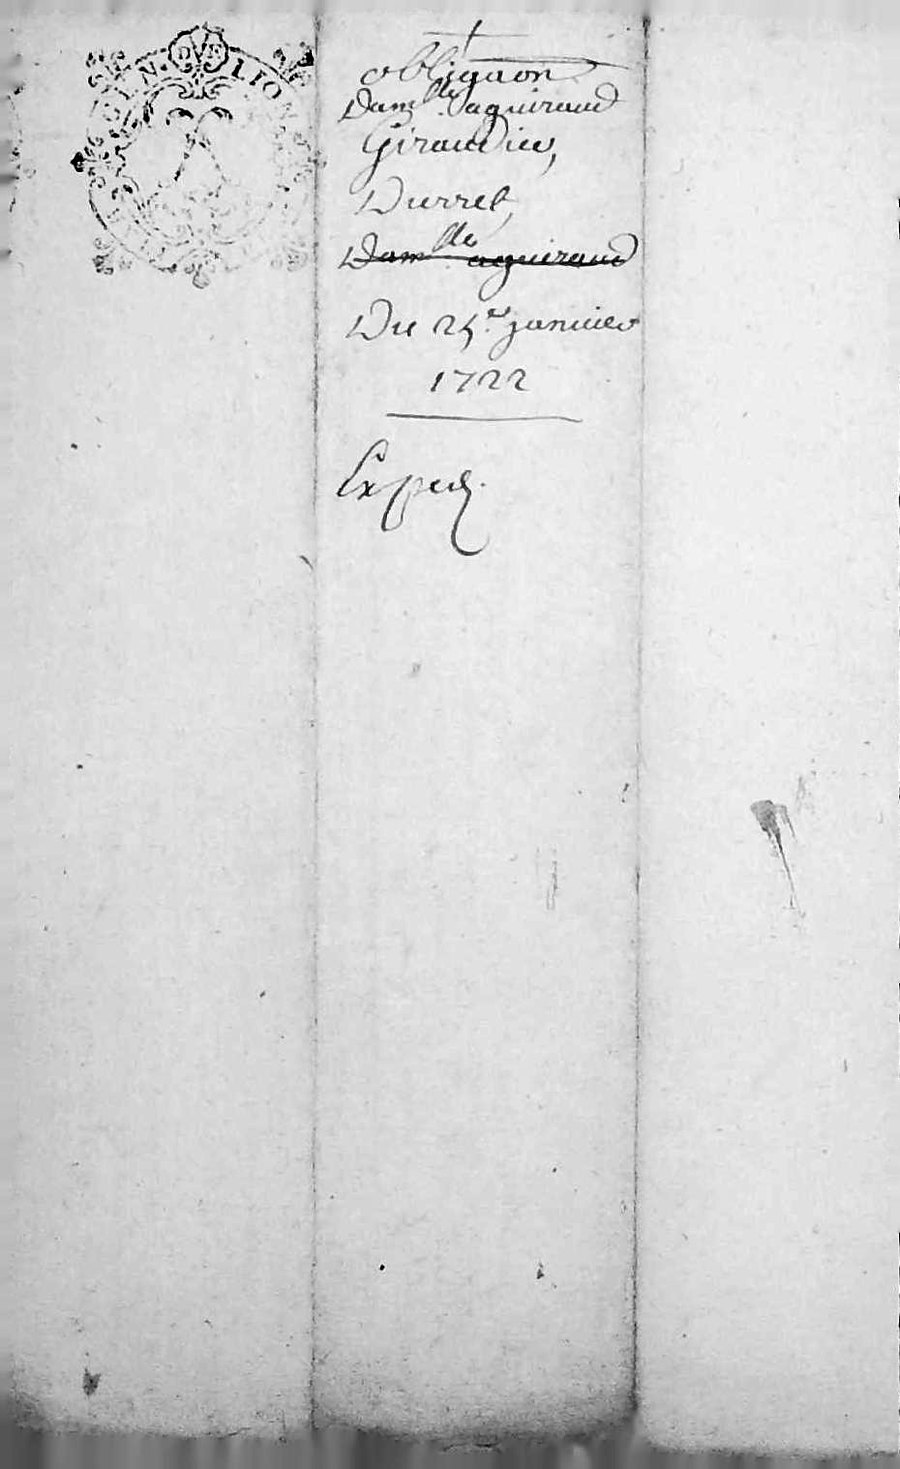 GEN. DE LION
obligaon
Dam.lle aguiraud
Giraudier,
Durret,
Dam.lle aguiraud
Du 25.e janvier
1722
Exped.